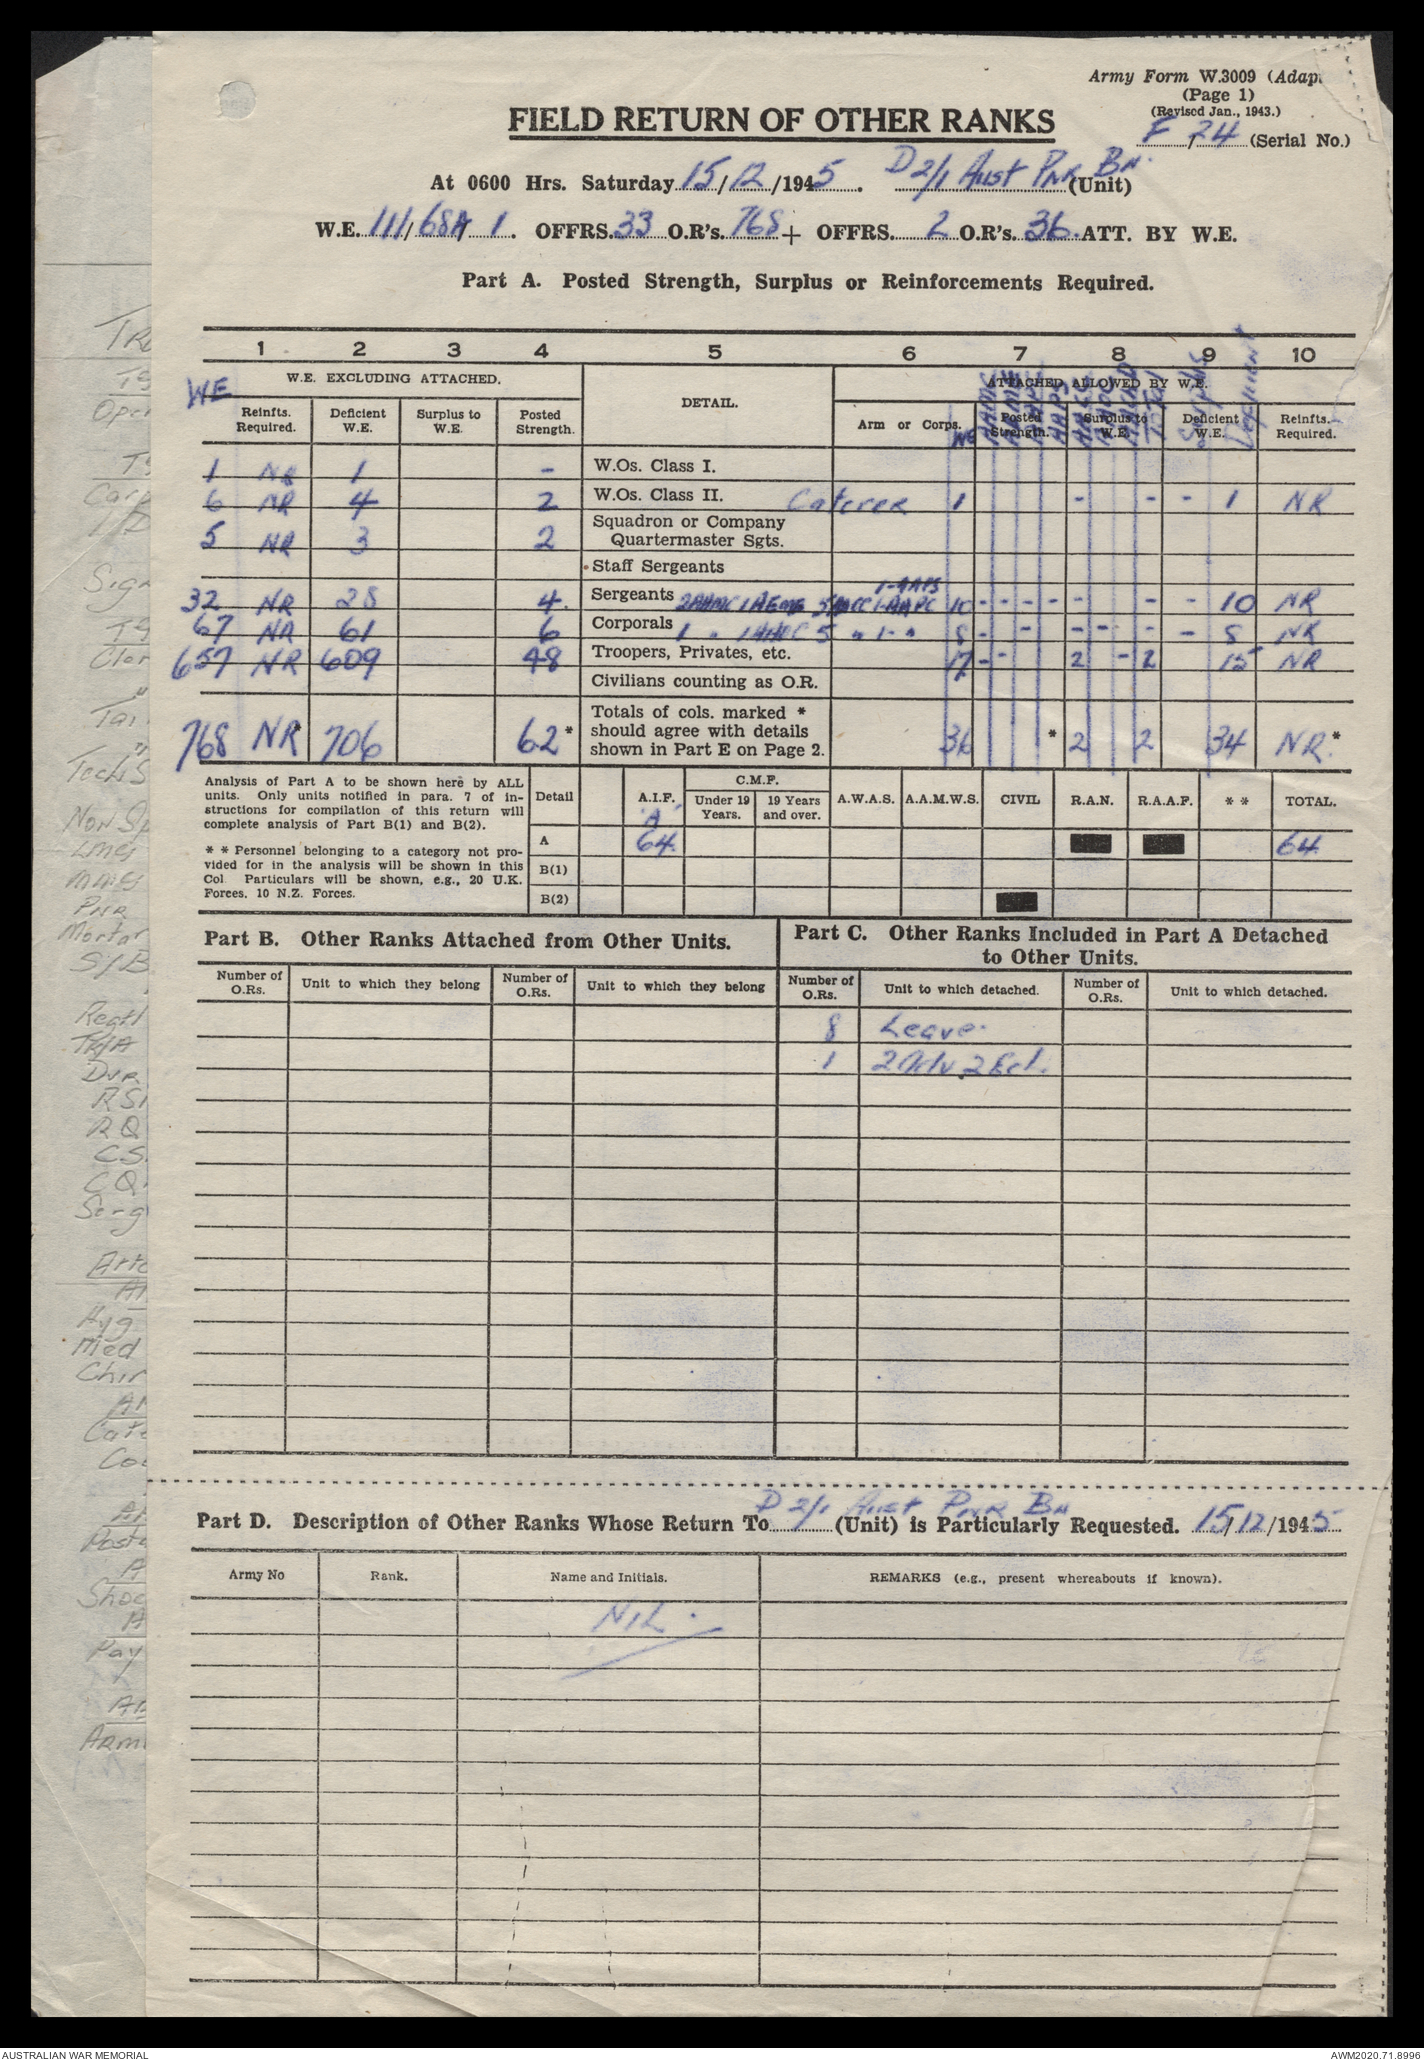 Army Form W.3009 (Adap
(Page 1)
(Revised Jan., 1943.)
FIELD RETURN OF OTHER RANKS
F / 24 (Serial No.)
At 0600 Hrs. Saturday 15/12/1945. D 2/1 Aust Pnr Bn. (Unit)
W.E. 111/68A 1. OFFRS. 33 O.R's. 768 + OFFRS. 2 O.R's. 36. ATT. BY W.E.
Part A. Posted Strength, Surplus or Reinforcements Required.
1 2 3 4 5 6 7 8 9 10
WE W.E. EXCLUDING ATTACHED. DETAIL. ATTACHED ALLOWED BY W.E.
Reinfts. Required. Deficient W.E. Surplus to W.E. Posted Strength. Arm or Corps. WE Posted Strength. Surplus to W.E. Total Deficient W.E. Surplus Deficient Reinfts. Required.
1 NR 1 - W.Os. Class I.
6 NR 4 2 W.Os. Class II. Caterer 1 - - - 1 NR
5 NR 3 2 Squadron or Company Quartermaster Sgts.
Staff Sergeants
1-AAPS
32 NR 28 4. Sergeants 2AAMC 1AEME 5AACC 1-AAPC 10 - - - - - - 10 NR
67 NR 61 6 Corporals 1 " 1AAPC 5 " 1 - " 8 - - - - - - 8 NR
657 NR 609 48 Troopers, Privates, etc. 17 - - 2 - 2 15 NR
Civilians counting as O.R.
768 NR* 706 62* Totals of cols. marked * should agree with details shown in Part E on Page 2. 36 * 2 2 34 NR.*
Analysis of Part A to be shown here by ALL
units. Only units notified in para. 7 of in-
structions for compilation of this return will
complete analysis of Part B(1) and B(2).
* * Personnel belonging to a category not pro-
vided for in the analysis will be shown in this
Col. Particulars will be shown, e.g., 20 U.K.
Forces, 10 N.Z. Forces.
Detail A.I.F. C.M.F. Under 19 Years. 19 Years and over. A.W.A.S. A.A.M.W.S. CIVIL R.A.N. R.A.A.F. * * TOTAL.
'A'
A 64. 64.
B(1)
B(2)
Part B. Other Ranks Attached from Other Units.
Part C. Other Ranks Included in Part A Detached
to Other Units.
Number of O.Rs. Unit to which they belong Number of O.Rs. Unit to which they belong Number of O.Rs. Unit to which detached. Number of O.Rs. Unit to which detached.
8 Leave.
1 2 Adv 2 Ech.
Part D. Description of Other Ranks Whose Return To D 2/1 Aust Pnr Bn (Unit) is Particularly Requested. 15/12/1945.
Army No Rank. Name and Initials. REMARKS (e.g., present whereabouts if known).
NIL.
Oper
Sign
Tai
Tech S
Non Sp
Pnr
Mortar
S/B
Regtl
Dvr
RQ
Hyg
Med
Pay
AUSTRALIAN WAR MEMORIAL
AWM2020.71.8996